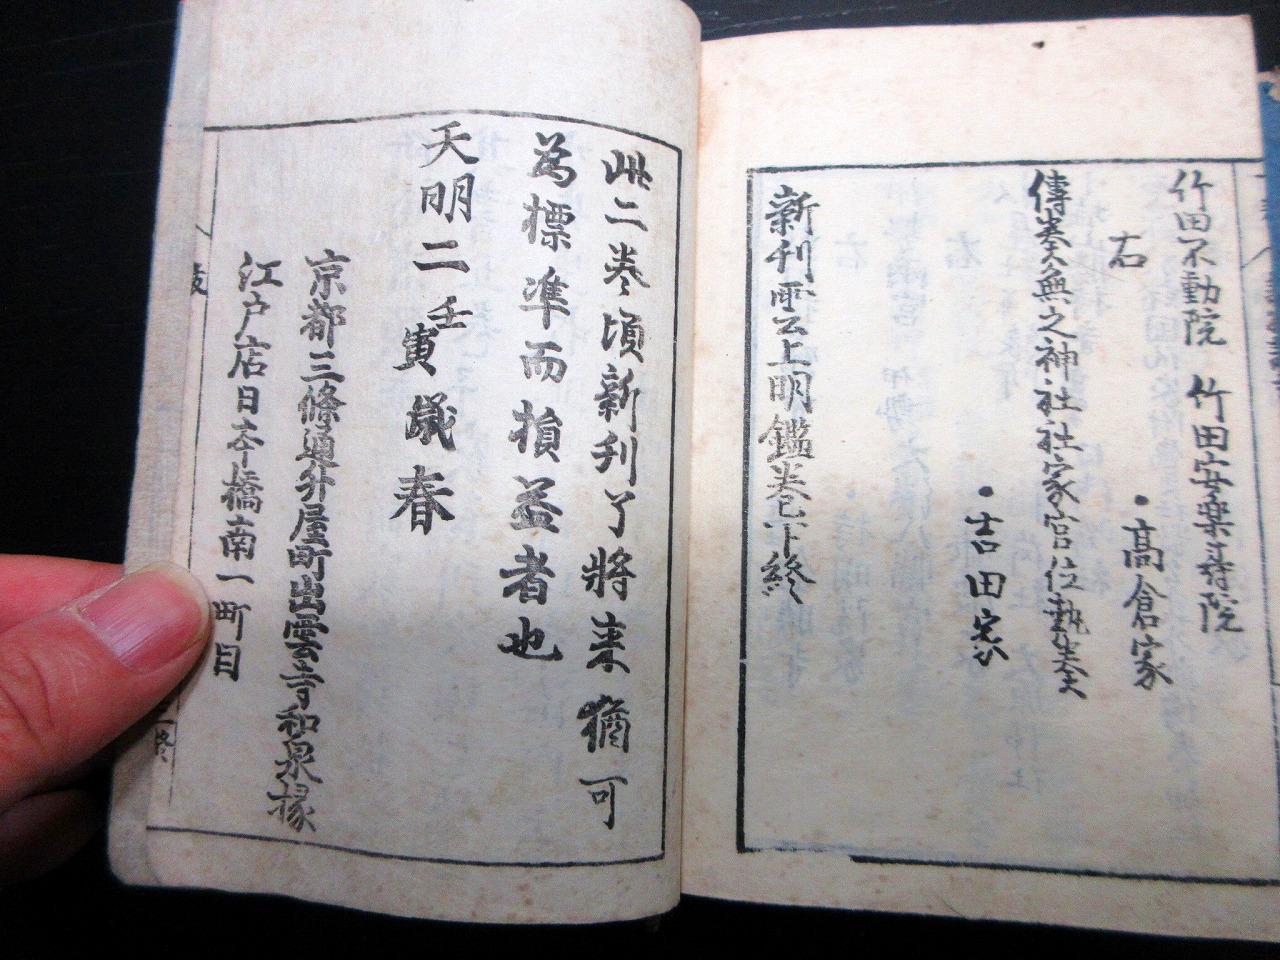 竹田不動院　竹田安楽寿院
右
・髙倉家
傳奏無之神社社家官位執奏
・吉田家
新刋雲上明鑑巻下終
此二巻頃新刋了將来猶可
為標準而損益者也
天明二壬寅歳春
京都三條通升屋町出雲寺和泉掾
江戸店日本橋南一町目